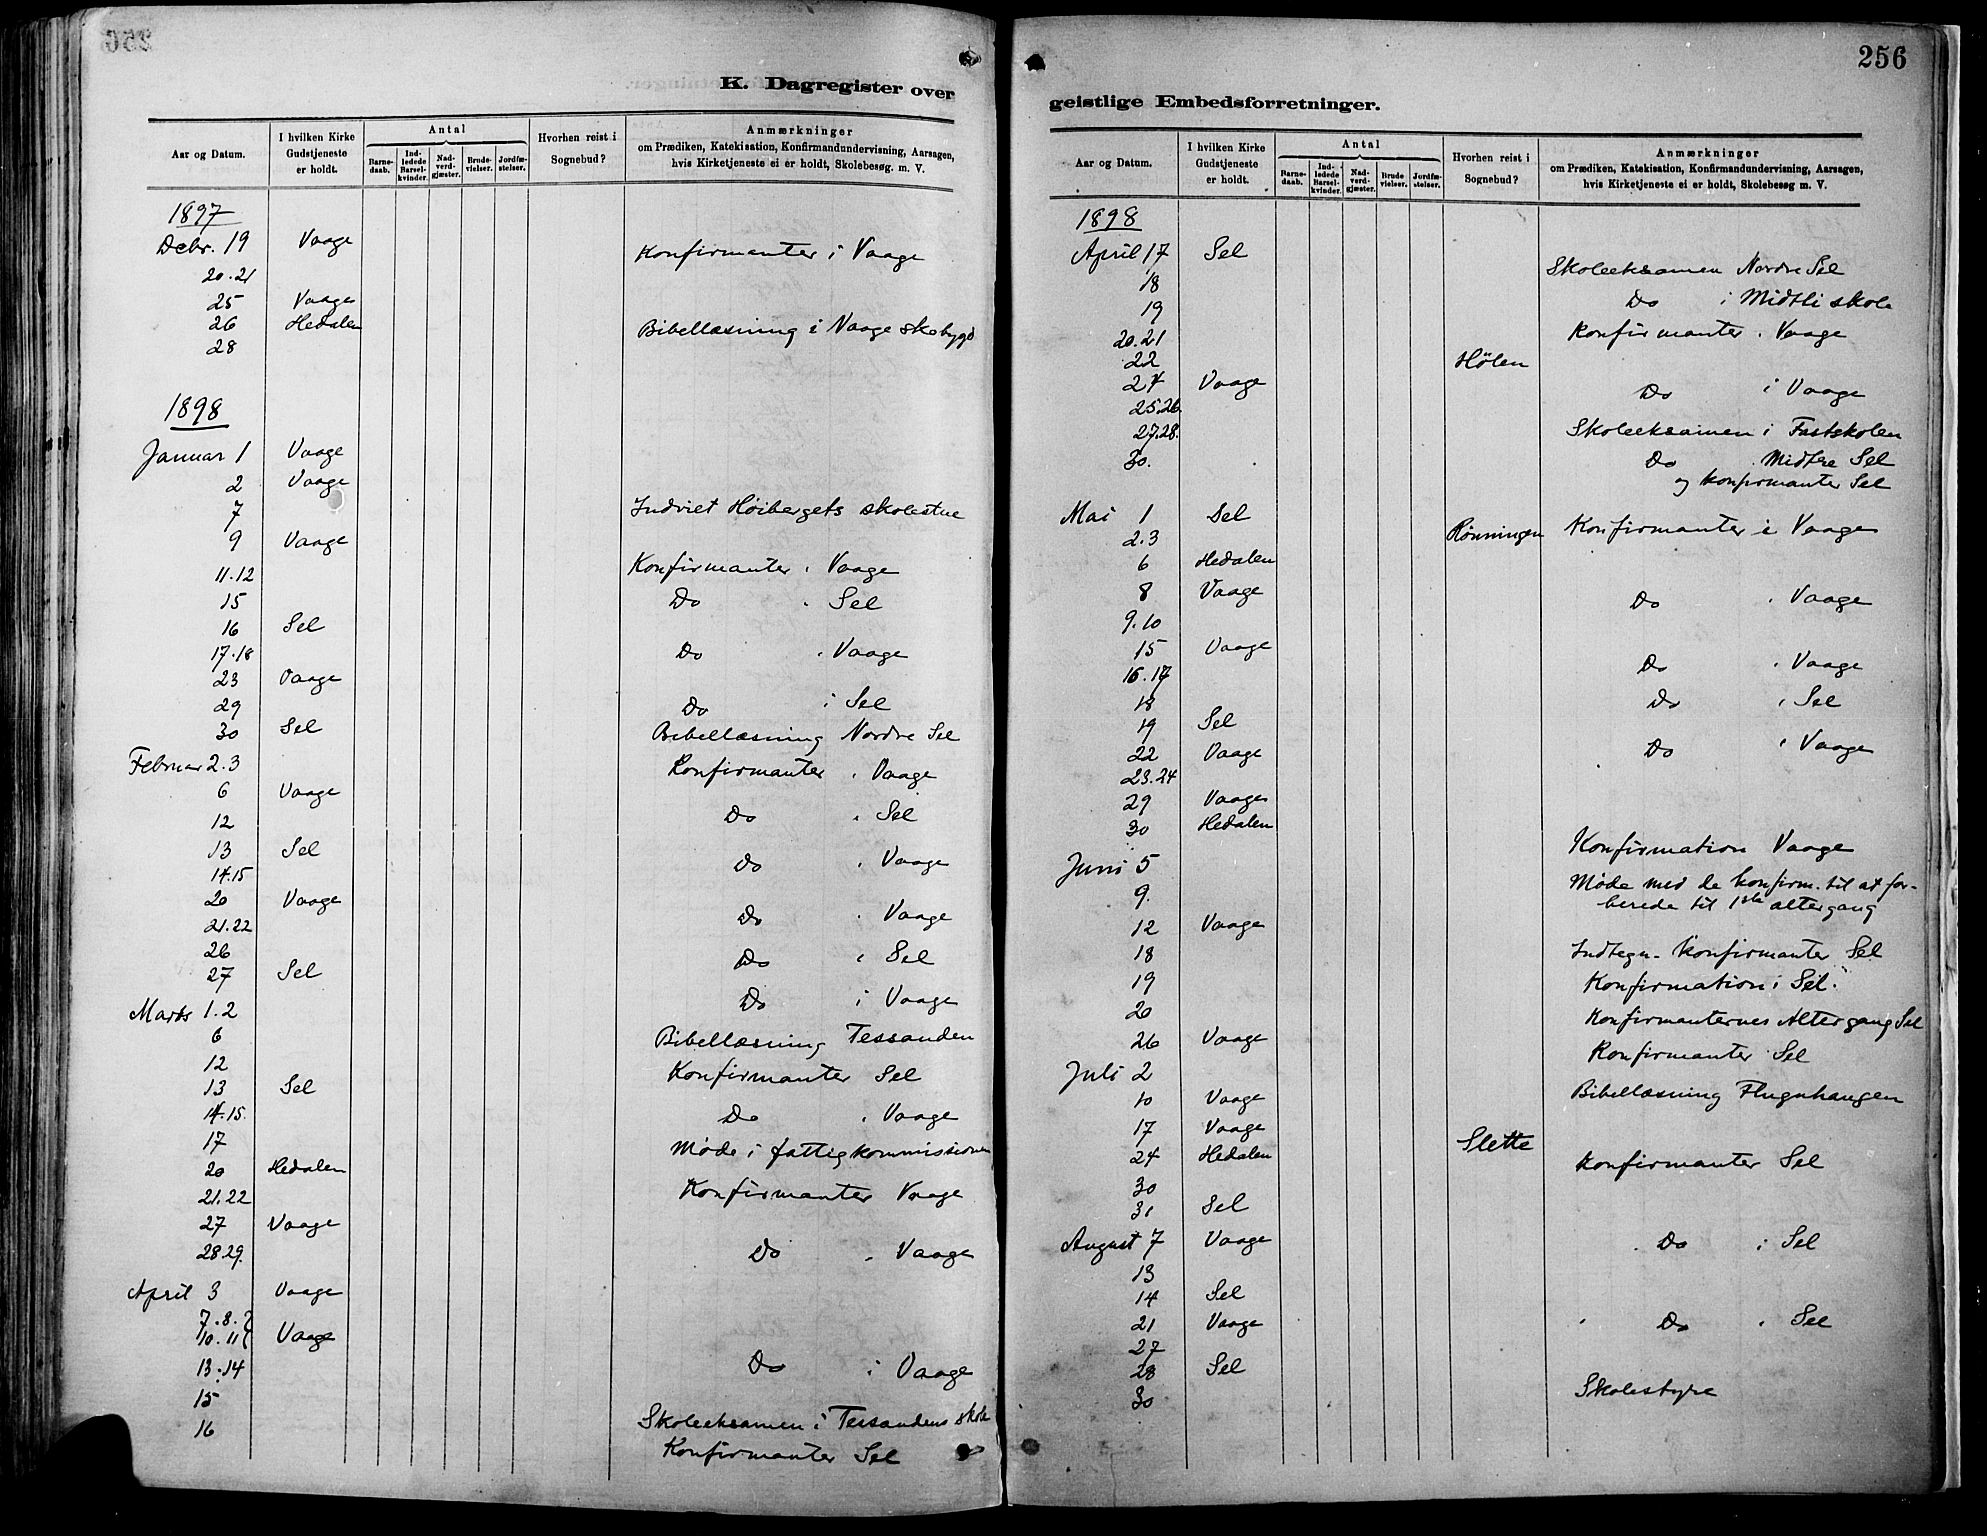 K. Dagregister over
Aar og Datum.
I hvilken Kirke Gudstjeneste er holdt.
Antal
Barne-daab.
Ind-ledede Barsel-kvinder.
Nad-verd-gjæster.
Brude-vielser.
Jordfæ-stelser.
Hvorhen reist i Sognebud?
Anmærkninger
om Prædiken, Katekisation, Konfirmandundervisning, Aarsagen,
hvis Kirketjeneste ei er holdt, Skolebesøg. m. V.
1897
Debr. 19 Vaage Konfirmanter i Vaage
20.21
25 Vaage
26 Hedalen Bibellæsning i Vaage skebygd
28
1898
Januar 1 Vaage
2 Vaage
7 Indviet Høibergets skolestue
9 Vaage
11.12 Konfirmanter i Vaage
15 Do i Sel
16 Sel
17.18 Do i Vaage
23 Vaage
29 Do i Sel
30 Sel Bibellæsning Nordre Sel
Februar 2.3 Konfirmanter i Vaage
6 Vaage
12 Do i Sel
13 Sel
14.15 Do i Vaage
20 Vaage
21.22 Do i Vaage
26 Do i Sel
27 Sel
Marts 1.2 Do i Vaage
6 Bibellæsning Tessanden
12 Konfirmanter Sel
13 Sel
14.15. Do i Vaage
17 Møde i fattigkommissionen
20 Hedalen
21.22 Konfirmanter Vaage
27 Vaage
28.29. Do i Vaage
April 3 Vaage
7.8.
10.11 Vaage
13.14 Do i Vaage
15
16 Skoleeksamen i Tessandens skole
Konfirmanter Sel
256
geistlige Embedsforretninger.
Aar og Datum.
I hvilken Kirke Gudstjeneste er holdt.
Antal
Barne-daab.
Ind-ledede Barsel-kvinder.
Nad-verd-gjæster.
Brude vielser.
Jordfæ-stelser.
Hvorhen reist i Sognebud?
Anmærkninger
om Prædiken, Katekisation, Konfirmandundervisning, Aarsagen,
hvis Kirketjeneste ei er holdt, Skolebesøg m. V.
1898
April 17 Sel
18 Skoleeksamen Nordre Sel
19 Do i Midtli skole
20.21 Konfirmanter i Vaage
22 Hølen
24 Vaage
25.26. Do i Vaage
27.28. Skoleeksamen i Fastskolen
30. Do Midtre Sel
og konfirmanter Sel
Mai 1 Sel
2.3 Rønningen Konfirmanter i Vaage
6 Hedalen
8 Vaage
9.10 Do i Vaage
15 Vaage
16.17 Do i Vaage
18 Do i Sel
19 Sel
22 Vaage Do i Vaage
23.24
29 Vaage
30 Hedalen
Juni 5 Konfirmation Vaage
9. Møde med de konfirm. til at for-
berede til 1ste altergang
12 Vaage
18 Indtegn. konfirmanter Sel
19 Konfirmation i Sel.
20 Konfirmanternes Altergang Sel
26 Vaage
Juli 2 Konfirmanter Sel
10 Vaage Bibellæsning Flugnhaugen
17 Vaage
24 Hedalen Slette
30 Konfirmanter Sel
31 Sel
August 7 Vaage
13 Do i Sel
14 Sel
21 Vaage
27 Do i Sel
28 Sel
30 Skolestyre